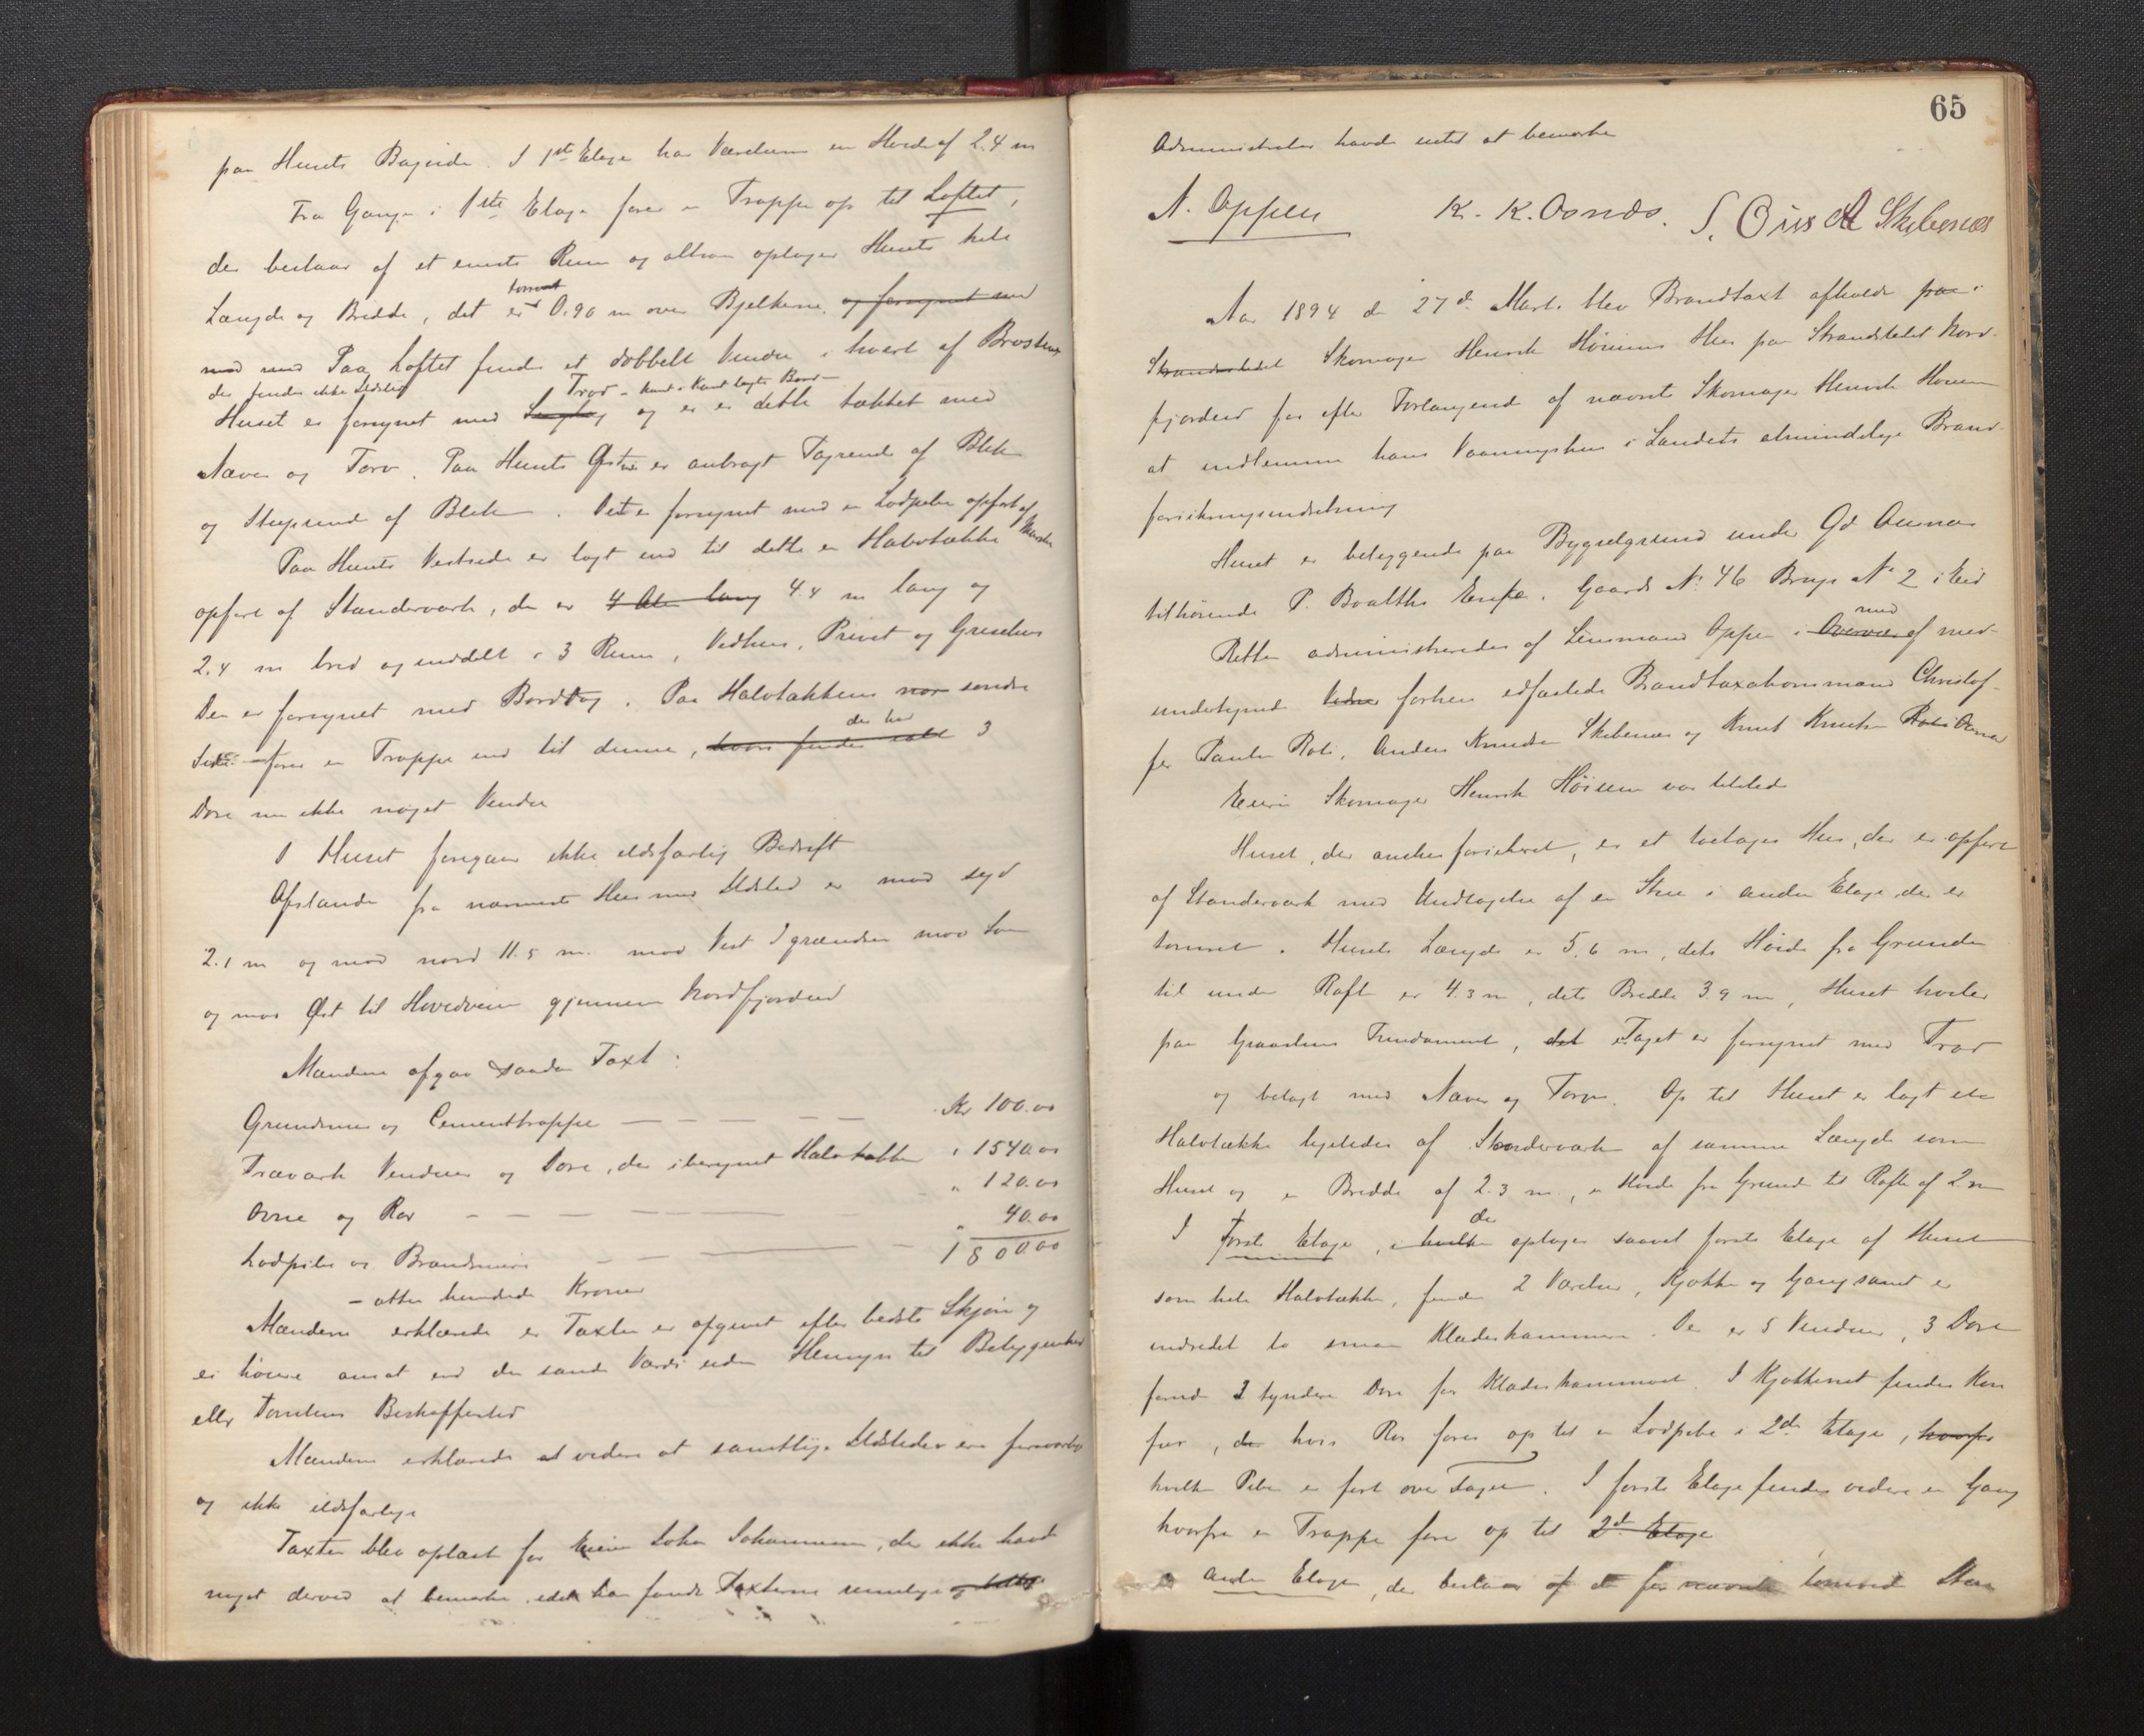 paa Husets Bagside. I 1ste Etage har Værelserne en Høide af 2.4 m
Fra Gangen i 1ste Etage fører en Trappe op til Loftet,
der bestaar af et eneste Rum og altsaa optager Husets hele
Længde og Bredde, det er tømret 0.90 m over Bjelkerne, og forsynet med
Paa Loftet findes et dobbelt Vindu i hvert af Brystene
der findes ikke Ildsted
Huset er forsynet med Trod - Kant i Kant lagte Bord - og er dette tækket med
Næver og Torv. Paa Husets Østside er anbragt Tagrende af Blik
og Steyrende af Blik. Det er forsynet med en Lodpibe opført af Mursten
Paa Husets Vestside er lagt ind til dette en Halvtække
opført af Standerværk, der er 4 Alen lang 4.4 m lang og
2.4 m bred og inddelt i 3 Rum, Vedhus, Privet og Grisehus
Den er forsynet med Bordtag. Paa Halvtækkens nor søndre
Side fører en Trappe ind til denne, hvori findes der har 3
Døre men ikke noget Vindu
I Huset foregaar ikke ildsfarlig Bedrift
Afstanden fra nærmeste Hus med Ildsted er mod syd
2.1 m og mod nord 11.5 m. mod Vest I grændsen mod
og mod Øst til Hovedveien gjennem Nordfjordeid
Mændene afgav saadan Taxt:
Grundmur og Cementtrappe — — — Kr 100.00
Træværk Vinduer og Døre, der iberegnet Halvtækken " 1540.00
Ovne og Rør — — — " 120.00
Lodpibe og Brandmure — — — " 40.00
1800.00
- atten hundrede Kroner
Mændene erklærede at Taxten er afgivet efter bedste Skjøn og
ei høiere ansat end den sande Værdi uden Hensyn til Beliggenhed
eller Tomtens Beskaffenhed
Mændene erklærede at videre at samtlige Ildsteder ere forsvarlige
og ikke ildsfarlige
Taxten blev oplæst for Eieren Johan Johannesen, der ikke havde
noget derved at bemærke idet han fandt Taxterne rimelige
65
Administrator havde intet at bemærke
N. Oppen K. K. Osnæs. A Skibenæs
Aar 1894 den 27d. Marts blev Brandtaxt afholdt paa i
Strandstedet Skomager Henrik Høinæs Hus paa Strandstedet Nord-
fjordeid for efter Forlangende af nævnte Skomager Henrik
at indlemme hans Vaaningshus i Landets almindelige Brand-
forsikringsindretning
Huset er beliggende paa Bygselgrund under Gd
tilhørende P. Boalths Enke. Gaards No. 46 Brugs No 2 i Eid
Retten administreredes af Lensmand Oppen i Overvær med af med-
undertegnede forhen edfæstede Brandtaxationsmænd Christof-
fer Paulsen Roti, Anders Knudsen Skibenæs og Knut Knutsen Roti Osnæs
Eieren Skomager Henrik var tilstede
Huset, der ønskes forsikret, er et toetages Hus, der er opført
af Standerværk med Undtagelse af en Stue i anden Etage der er
tømret. Husets Længde er 5.6 m, dets Høide fra Grunden
til under Raft er 4.3 m, dets Bredde 3.9 m, Huset hviler
paa Graastens Fundament, det Taget er forsynet med Trod
og belagt med Næver og Torv. Op til Huset er lagt en
Halvtække ligeledes af Standerværk af samme Længde som
Huset og en Bredde af 2.3 m., en Høide fra Grund til Raft af 2 m
I første Etage, i hvilken der optager saavel første Etage af Huset
som hele Halvtækken, findes 2 Værelser, Kjøkken og Gang samt er
indredet to smaa Klædeskammere. Der er 5 Vinduer, 3 Døre
forud 2 tyndere Døre for Klædeskammeret. I Kjøkkenet findes Kom
fur, der hvis Rør føres op til en Lodpibe i 2den Etage, hvorfra
hvilken Pibe er ført over Taget. I første Etage findes videre en Gang
hvorfra en Trappe fører op til 2d Etage
anden Etage, der bestaar af den før nævnte tømrede Stue